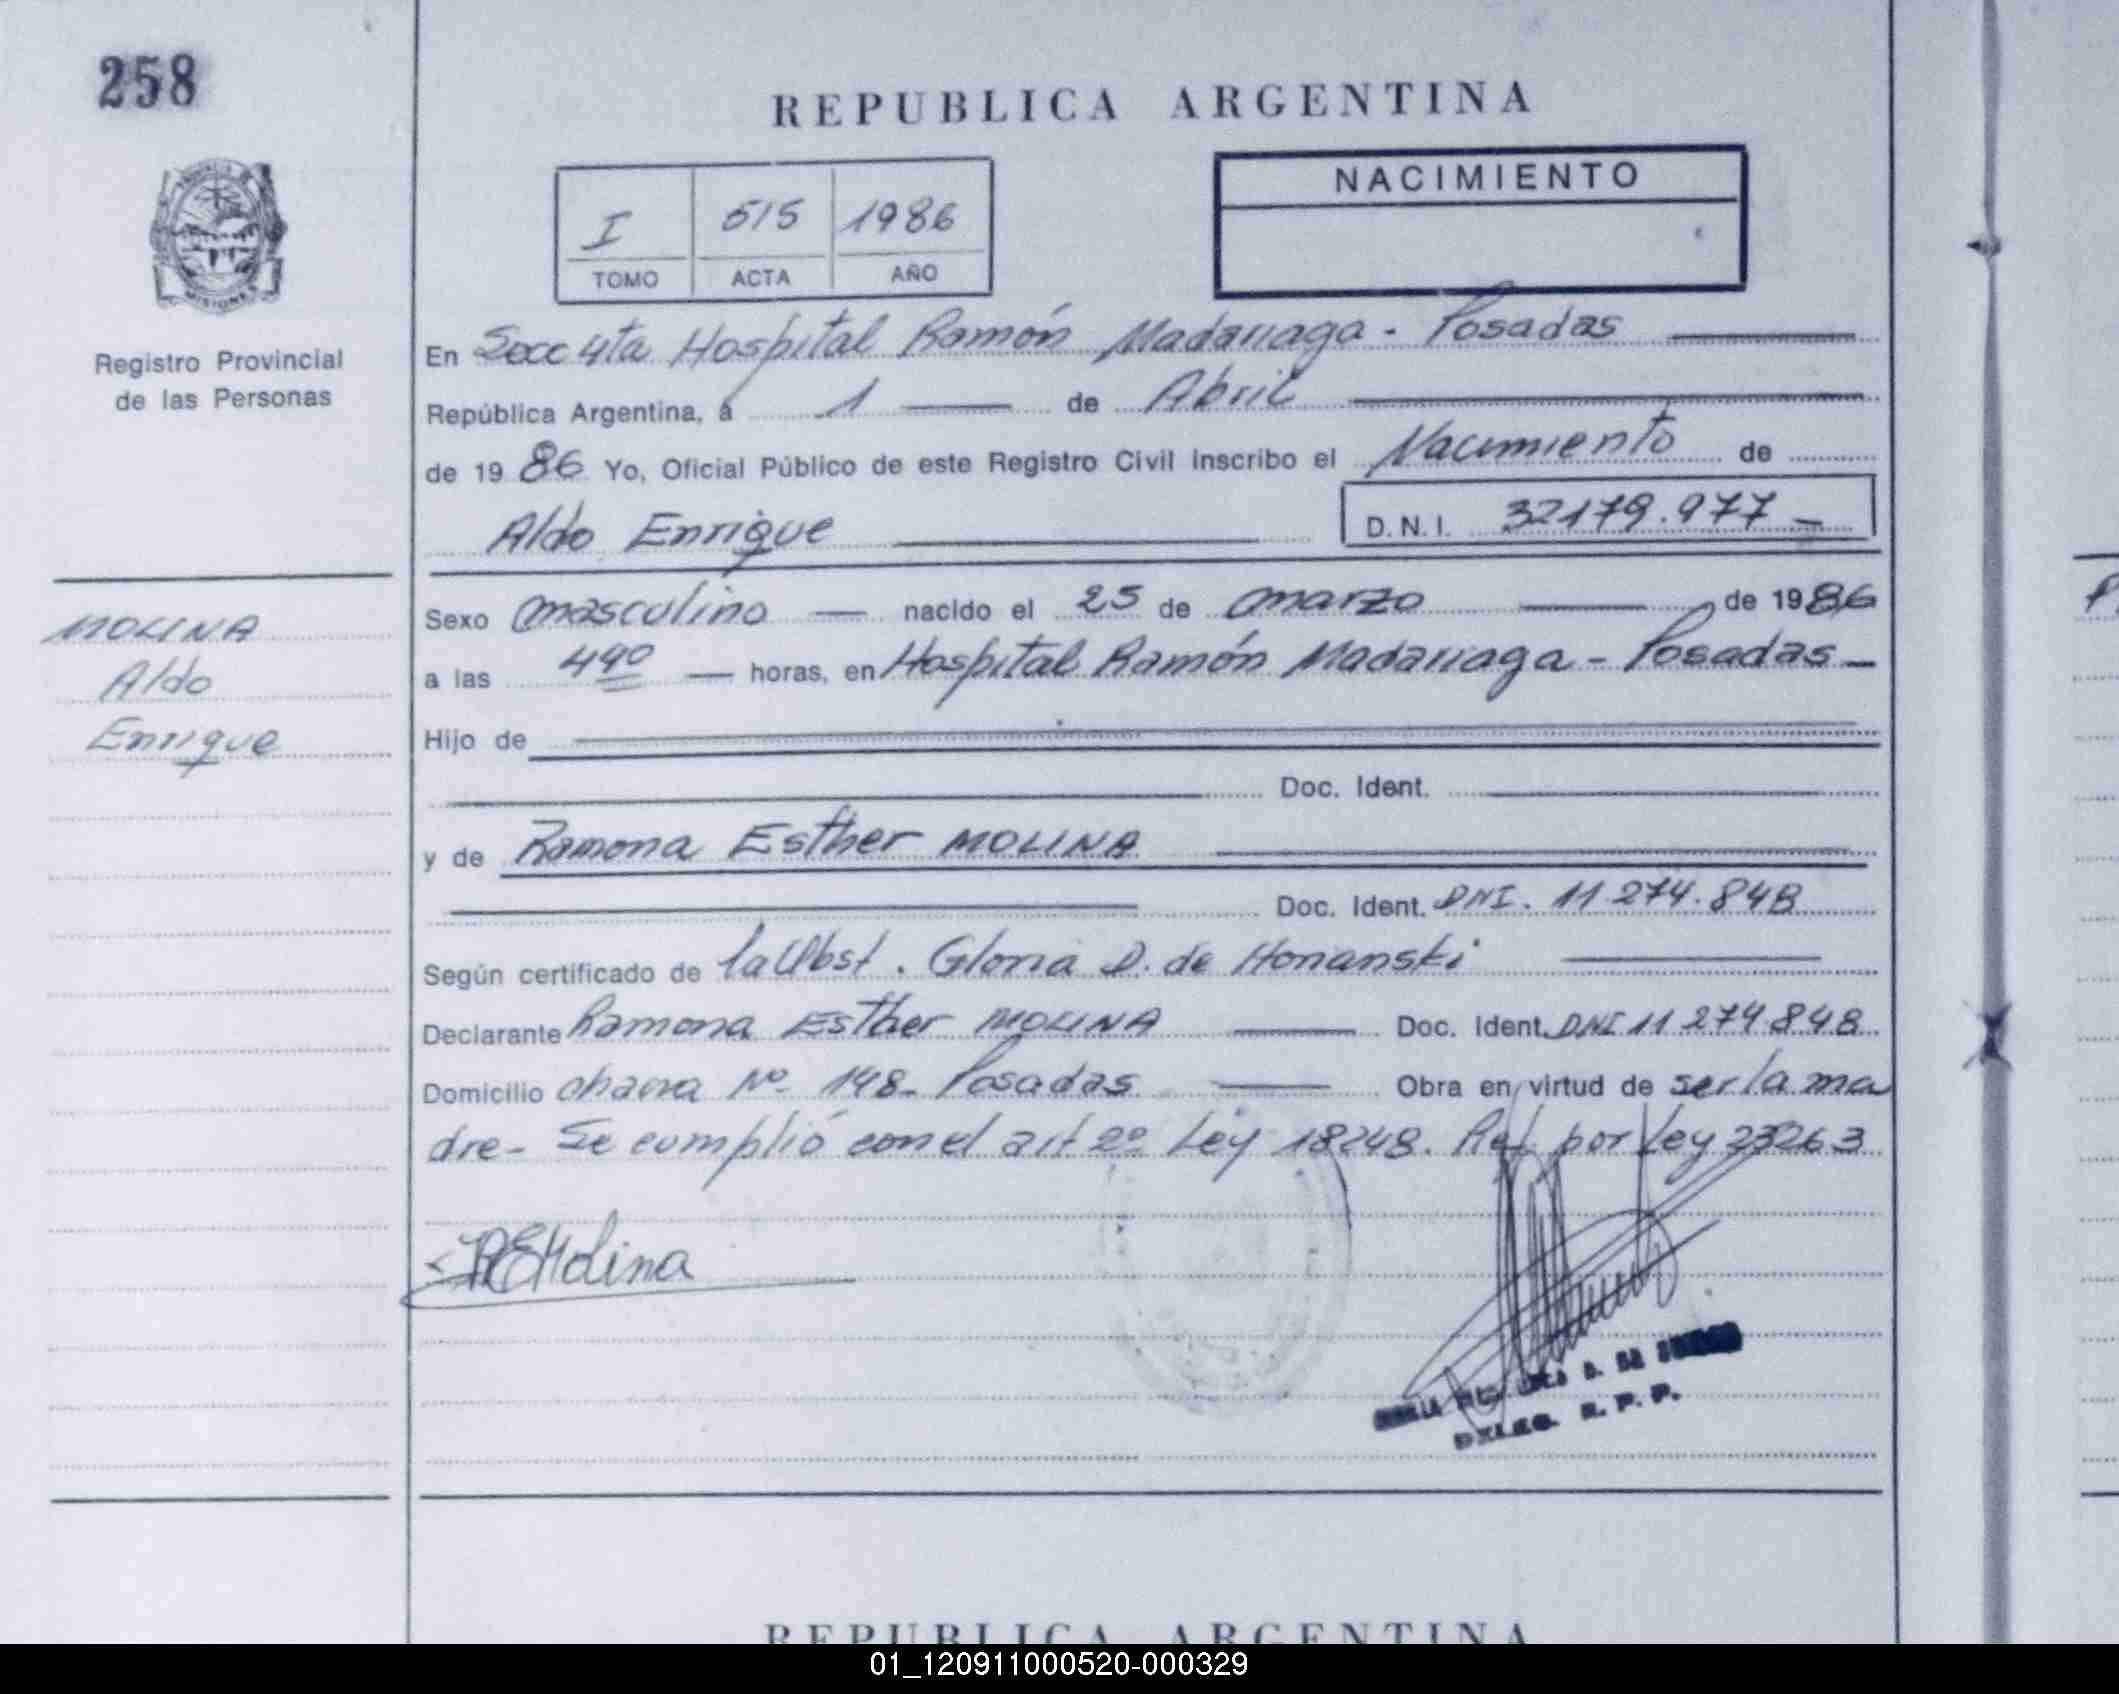 258
REPUBLICA ARGENTINA
MISIONES
Registro Provincial
de las Personas
I 515 1986
TOMO ACTA AÑO
NACIMIENTO
En Secc 4ta Hospital Ramón Madariaga - Posadas
República Argentina, a 1 de Abril
de 1986 Yo, Oficial Público de este Registro Civil inscribo el Nacimiento de
Aldo Enrique D.N.I. 32179.977 -
MOLINA
Aldo
Enrique
Sexo masculino nacido el 25 de marzo de 1986
a las 4 horas, en Hospital Ramón Madariaga - Posadas -
Hijo de
Doc. Ident.
y de Ramona Esther MOLINA
Doc. Ident. DNI. 11.274.848
Según certificado de la Obst. Gloria D. de Honanski
Declarante Ramona Esther MOLINA Doc. Ident. DNI 11 274 848
Domicilio chacra Nº 148 - Posadas Obra en virtud de ser la ma
dre - Se cumplió con el art 2º Ley 18248. Ref por Ley 23263
REMolina
DELEG. R. P. P.
REPUBLICA ARGENTINA
01_120911000520-000329